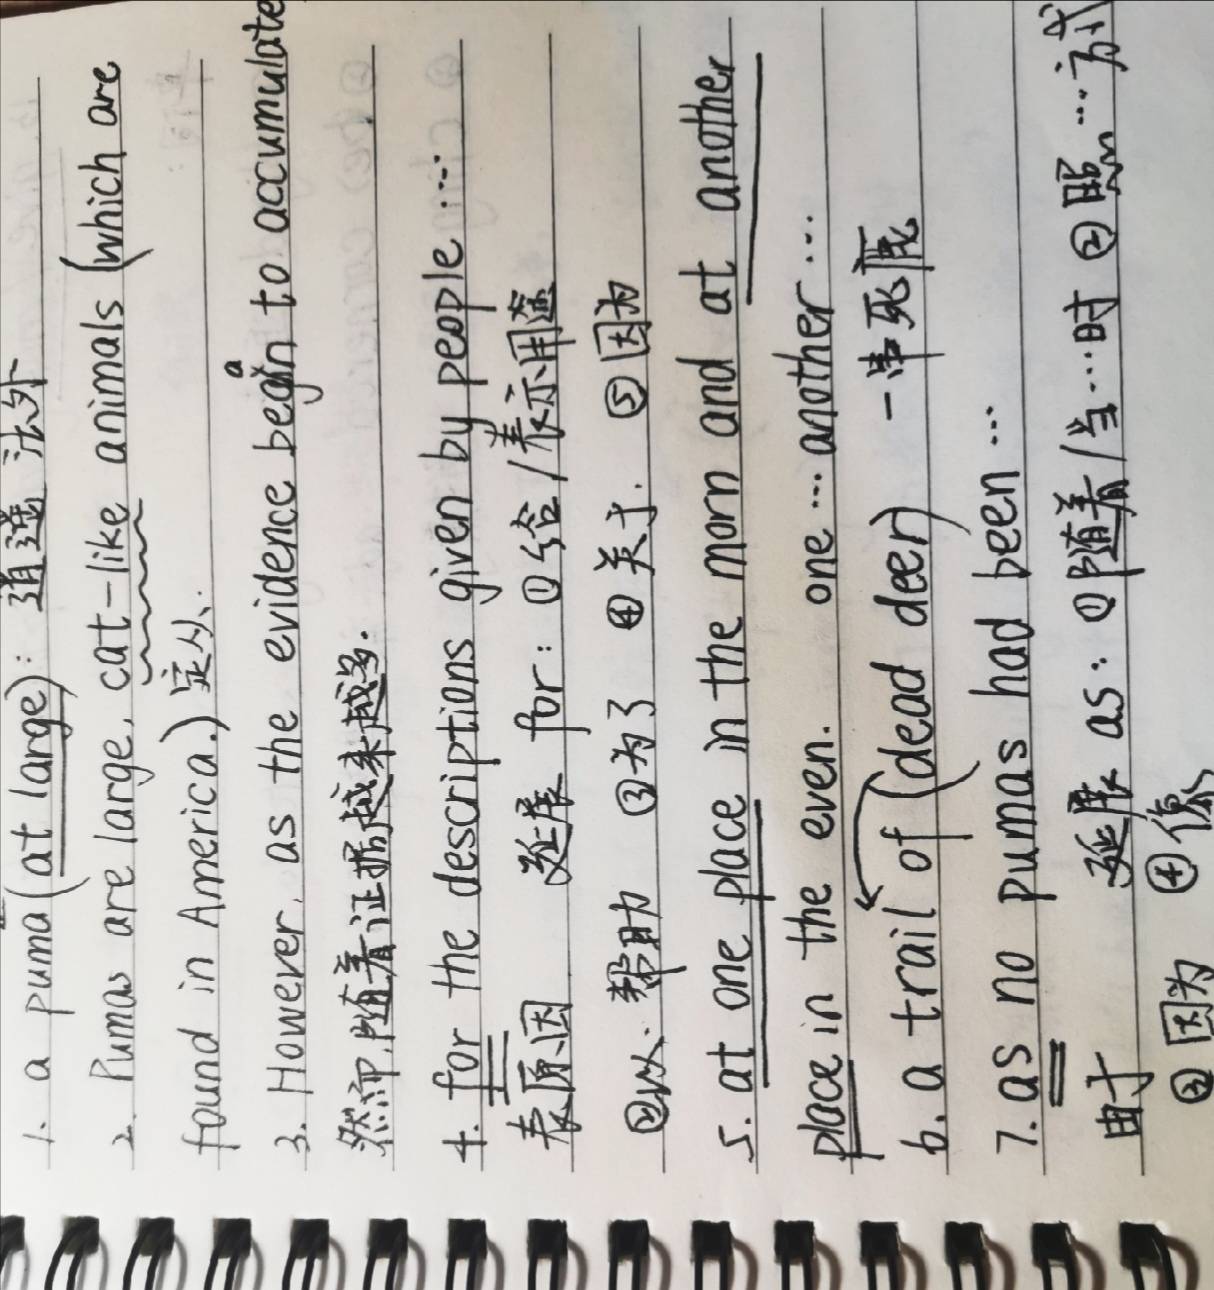 1. a puma (at large): 逍遥法外
2. Pumas are large, cat-like animals (which are
found in America.) 定从.
3. However, as the evidence began to accumulate
然而,随着证据越来越多.
4. for the descriptions given by people ...
表原因 延展 for: ①给/表示用途
②以、帮助 ③为了 ④关于. ⑤因为
5. at one place in the morn and at another
place in the even. one ... another ...
6. a trail of (dead deer) 一串死鹿
7. as no pumas had been ...
由于 延展 as: ①随着/当...时 ②照...方式
③因为 ④像